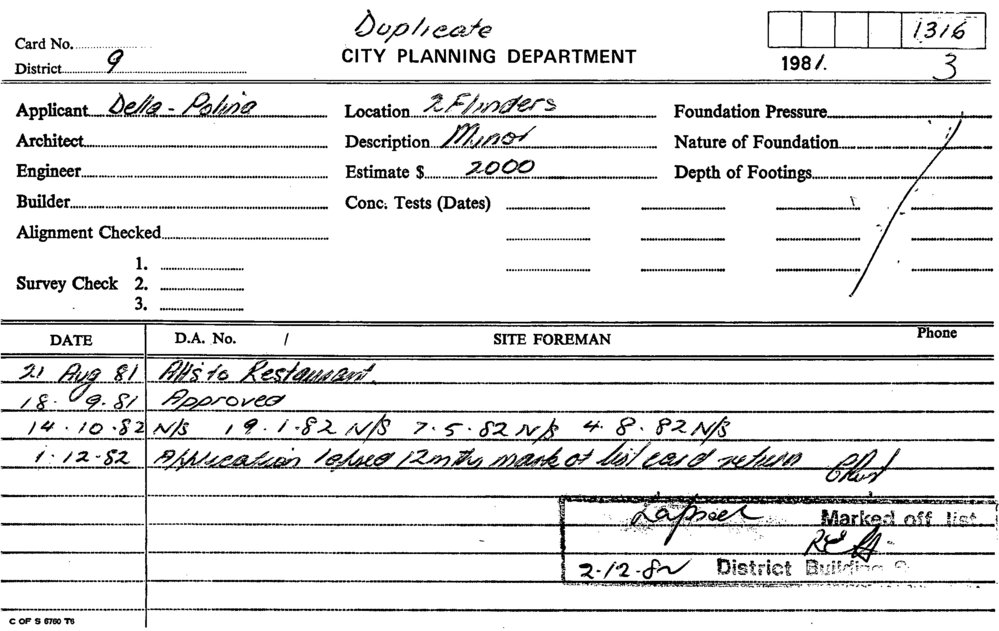 Duplicate
1316
Card No.
CITY PLANNING DEPARTMENT
1981.
3
District 9
Applicant Della-Polina
Location 2 Flinders
Foundation Pressure
Architect
Description Minor
Nature of Foundation
Engineer
Estimate $ 2000
Depth of Footings
Builder
Conc. Tests (Dates)
Alignment Checked
Survey Check
1.
2.
3.
DATE D.A. No. / SITE FOREMAN Phone
21 Aug 81 Alts to Restaurant.
18. 9.81 Approved
14.10.82 N/S 19.1.82 N/S 7.5.82 N/S 4.8.82 N/S
1.12.82 Application lapsed 12mths mark of list card return
Lapsed Marked off list
2-12-82 District Building
C OF S 6760 T6